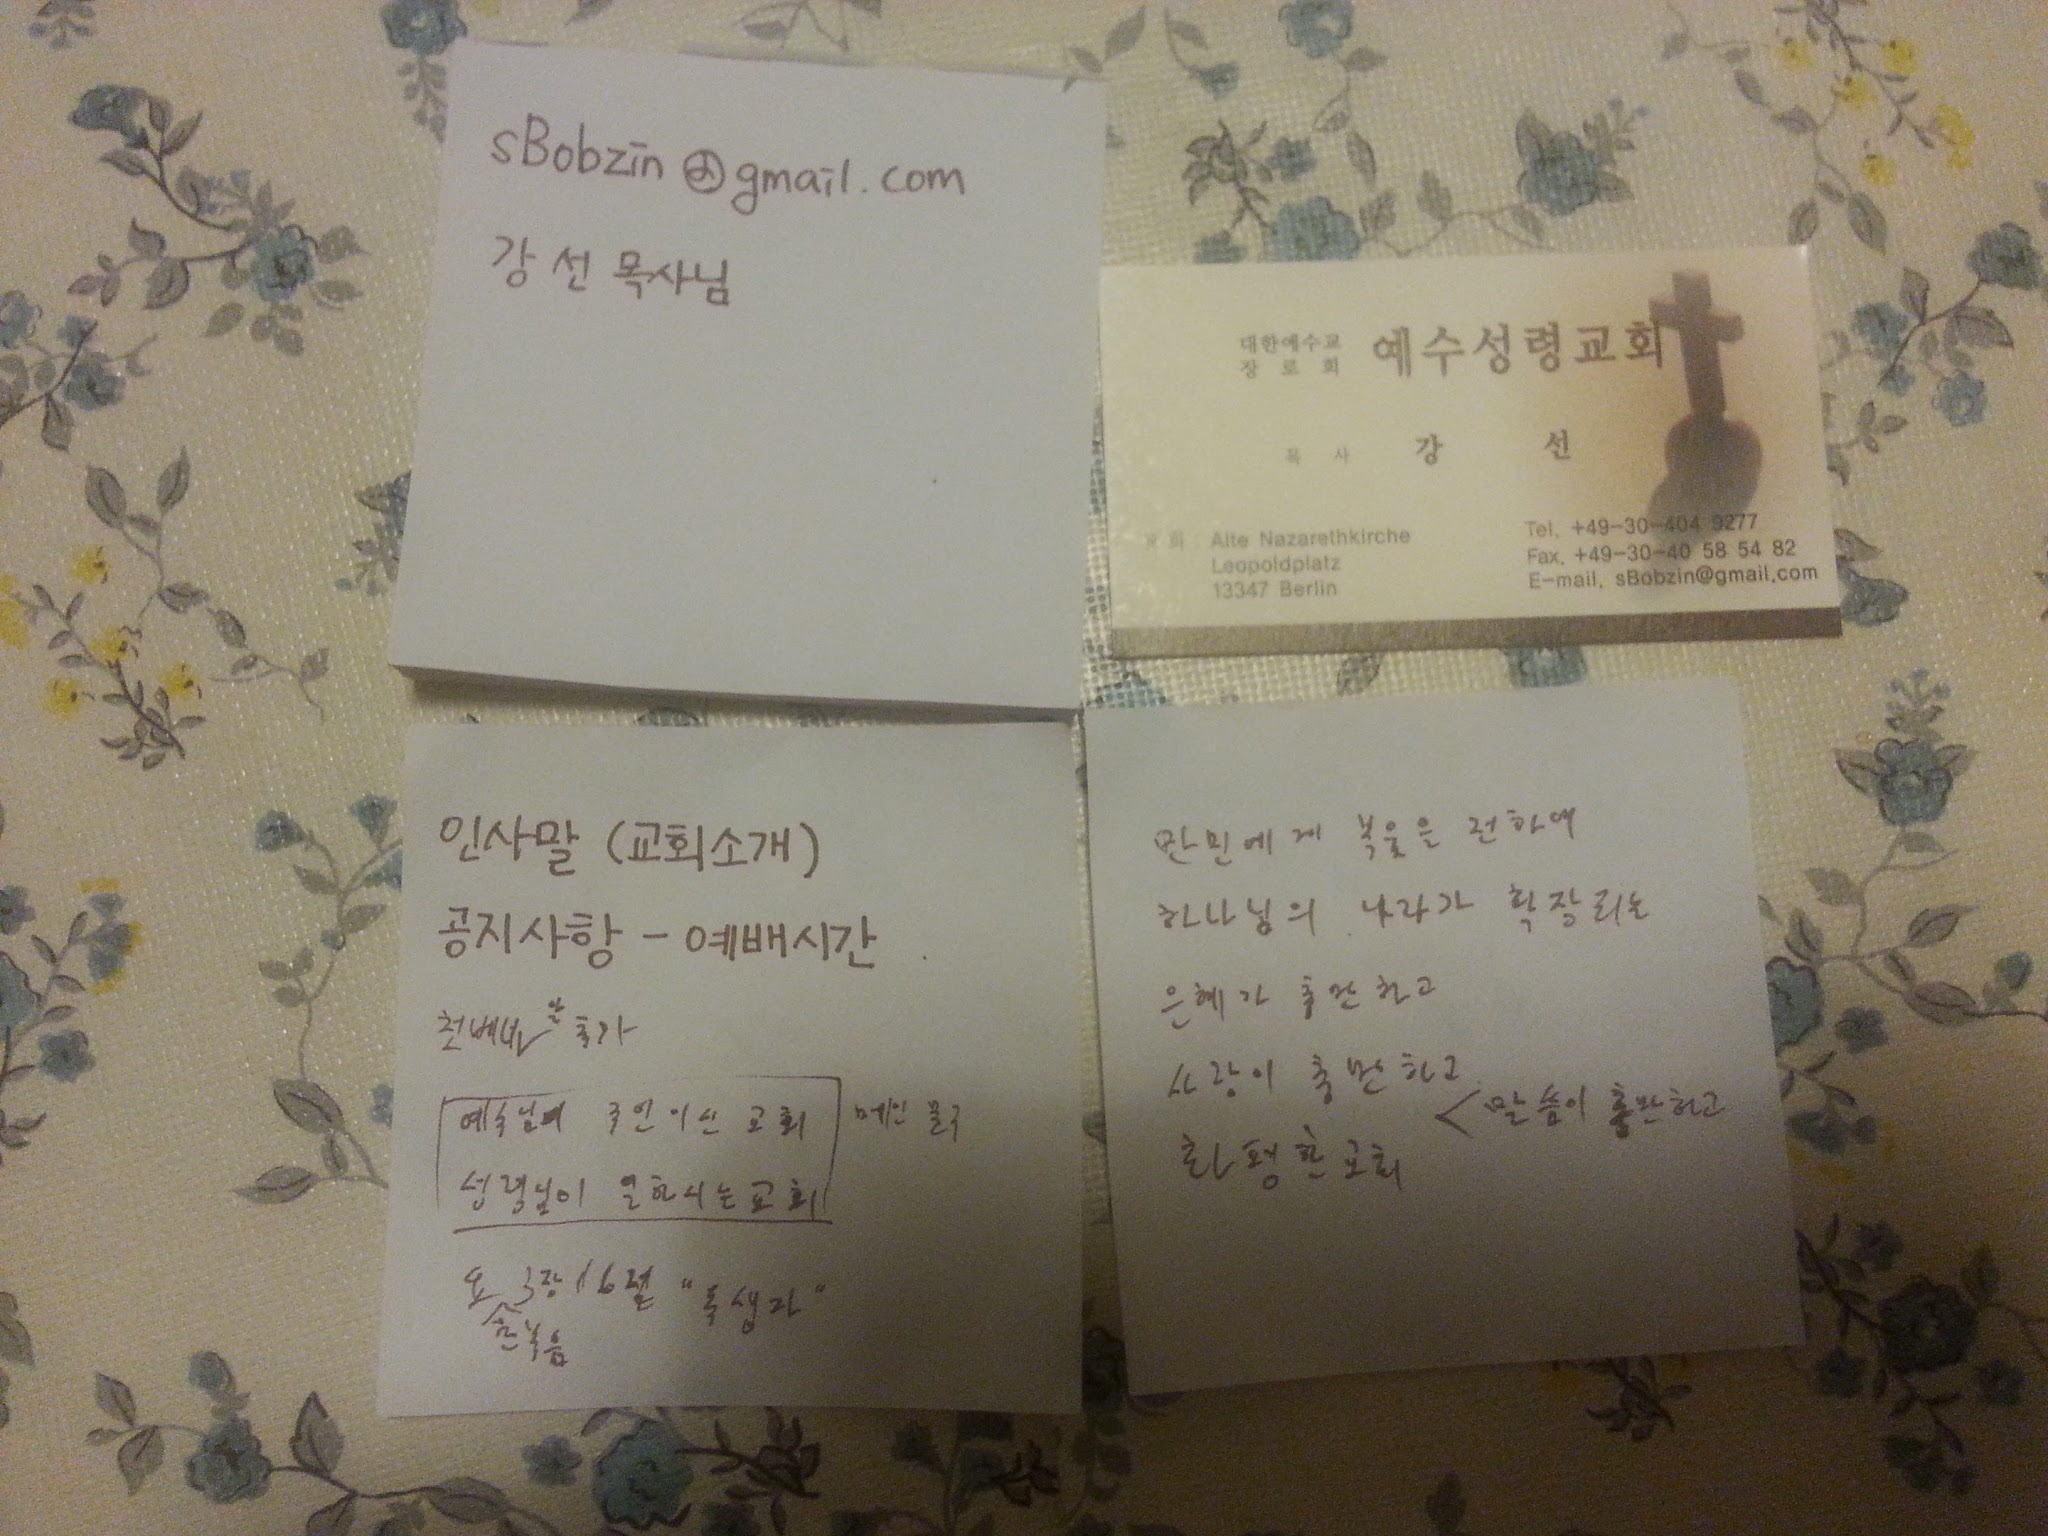 sBobzin@gmail.com
강 선 목사님
대한예수교
장 로 회
예수성령교회
목 사 강 선
교 회 : Alte Nazarethkirche
Leopoldplatz
13347 Berlin
Tel. +49-30-404 9277
Fax. +49-30-40 58 54 82
E-mail. sBobzin@gmail.com
인사말 (교회소개)
공지사항 - 예배시간
추가
예수님이 주인이신 교회 메인 문구
성령님이 일하시는 교회
요 3장 16절 "독생자"
한복음
만민에게 복음을 전하여
하나님의 나라가 확장되는
은혜가 충만하고
사랑이 충만하고
< 말씀이 충만하고
화평한 교회